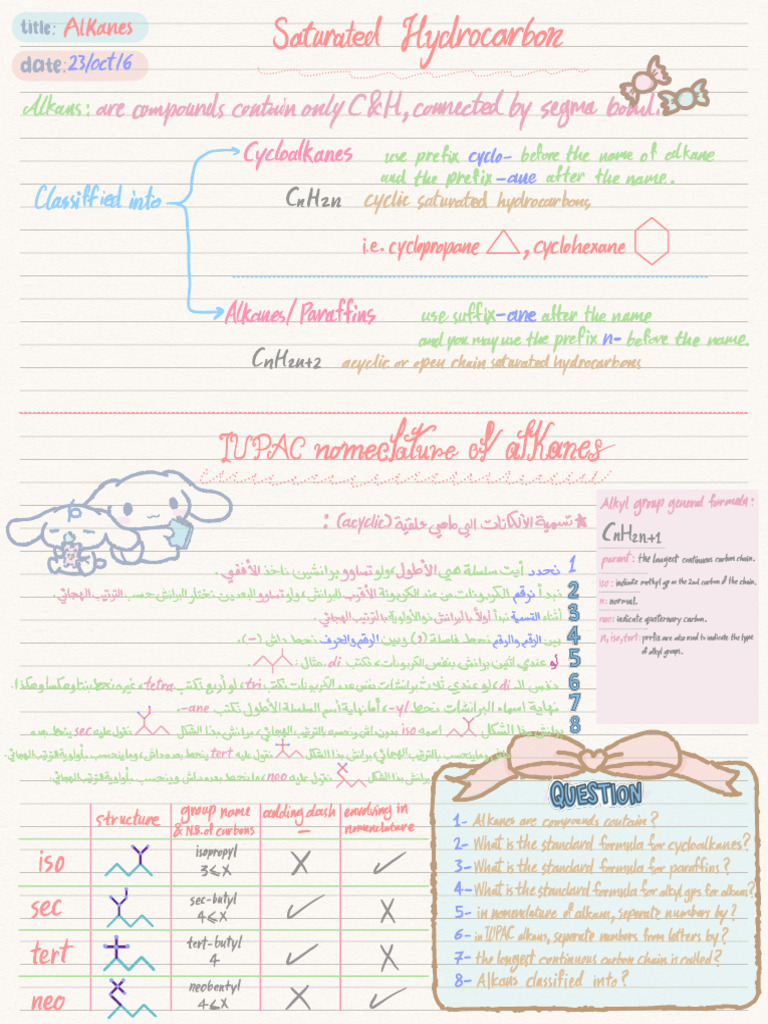 title: Alkanes
date: 23/oct/6
Saturated Hydrocarbon
Alkans: are compounds contain only C & H, connected by segma bond.
Classiffied into
Cycloalkanes
use prefix cyclo- before the name of alkane
and the prefix -ane after the name.
CnH2n
cyclic saturated hydrocarbons,
i.e. cyclopropane , cyclohexane
Alkanes/Paraffins
use suffix -ane after the name
and you may use the prefix n- before the name.
CnH2n+2
acyclic or open chain saturated hydrocarbons
IUPAC nomeclature of alkanes
★ تسمية الألكانات الي ماهي حلقية (acyclic) :
1 نحدد أيت سلسلة هي الأطول، ولو تساوو برانشين ناخذ الأفقي.
2 نبدأ نرقم الكربونات من عند الكربونة الأقرب للبرانش، ولو تساوو البعدين نختار البرانش حسب الترتيب الهجائي.
3 أثناء التسمية نبدأ أولاً بالبرانش ذو الأولوية بالترتيب الهجائي.
4 بين الرقم والرقم نحط فاصلة (,) وبين الرقم والحرف نحط داش (-).
5 لو عندي اثنين برانش بنفس الكربونات، نكتب di. مثال:
6 نفس الـ di، لو عندي ثلاث برانشات نفس عدد الكربونات نكتب tri، لو أربع نكتب tetra،
7 نهاية اسماء البرانشات نحط yl-، أما نهاية أسم السلسلة الأطول نكتب ane-.
8 برانش بذا الشكل اسمه iso
Alkyl group general formula:
CnH2n+1
parant: the longest continuous carbon chain.
iso: indicate methyl gp on the 2nd carbon of the chain.
n: normal.
neo: indicate quaternary carbon.
n, iso, tert: prefix are also used to indicate the type
of alkyl groups.
structure
group name
& N.B. of carbons
adding dash
—
envolving in
nomenclature
iso
isopropyl
3⩽X
sec
sec-butyl
4⩽X
tert
tert-butyl
4
neo
neobentyl
4⩽X
QUESTION
1- Alkanes are compounds contain?
2- What is the standard formula for cycloalkanes?
3- What is the standard formula for paraffins?
4- What is the standard formula for alkyl gps for alkans?
5- in nomenclature of alkans, separate numbers by?
6- in IUPAC alkans, separate numbers from letters by?
7- the longest continuous carbon chain is called?
8- Alkans classified into?